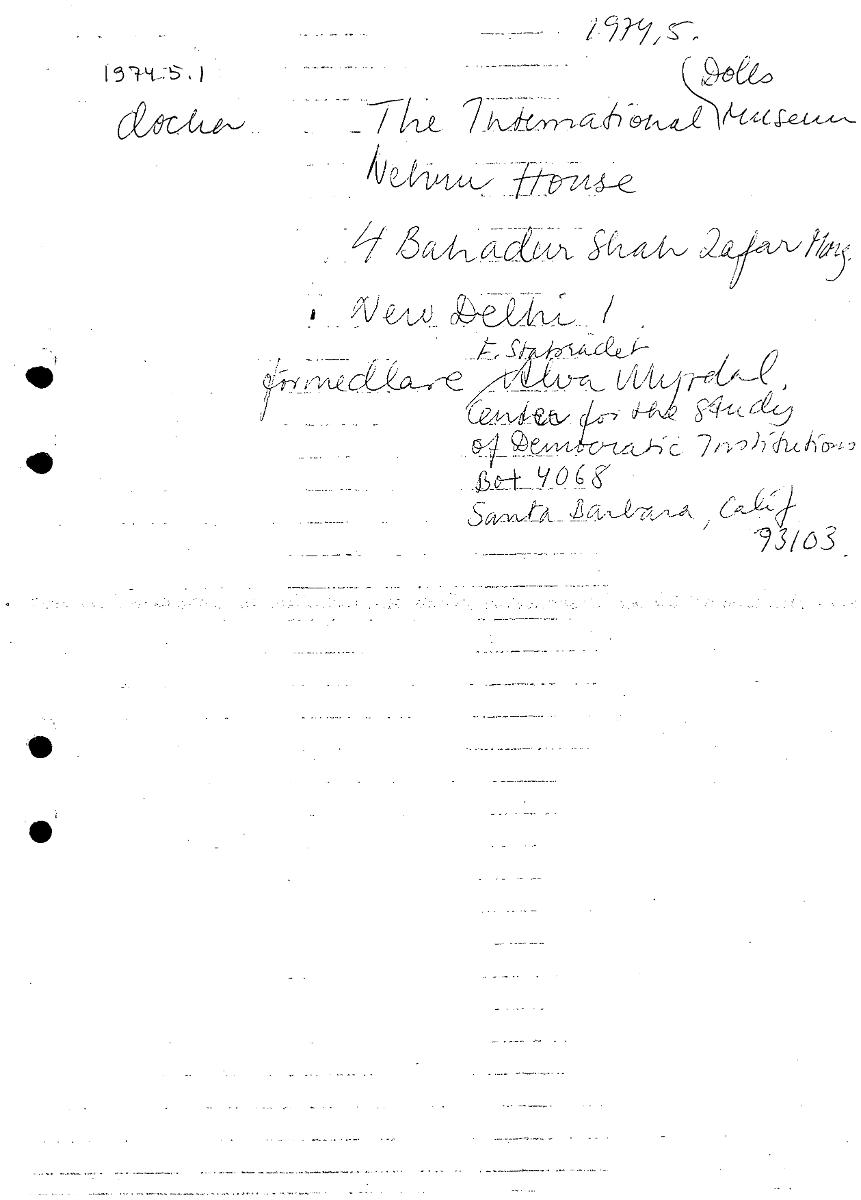 1974,5.
1974.5.1
Dolls
dockor The International Museum
Nehru House
4 Bahadur Shah Zafar Marg.
New Delhi 1
F. Statsrådet
förmedlare Alva Myrdal,
Center for the Study
of Democratic Institutions
Box 4068
Santa Barbara, Calif
93103.